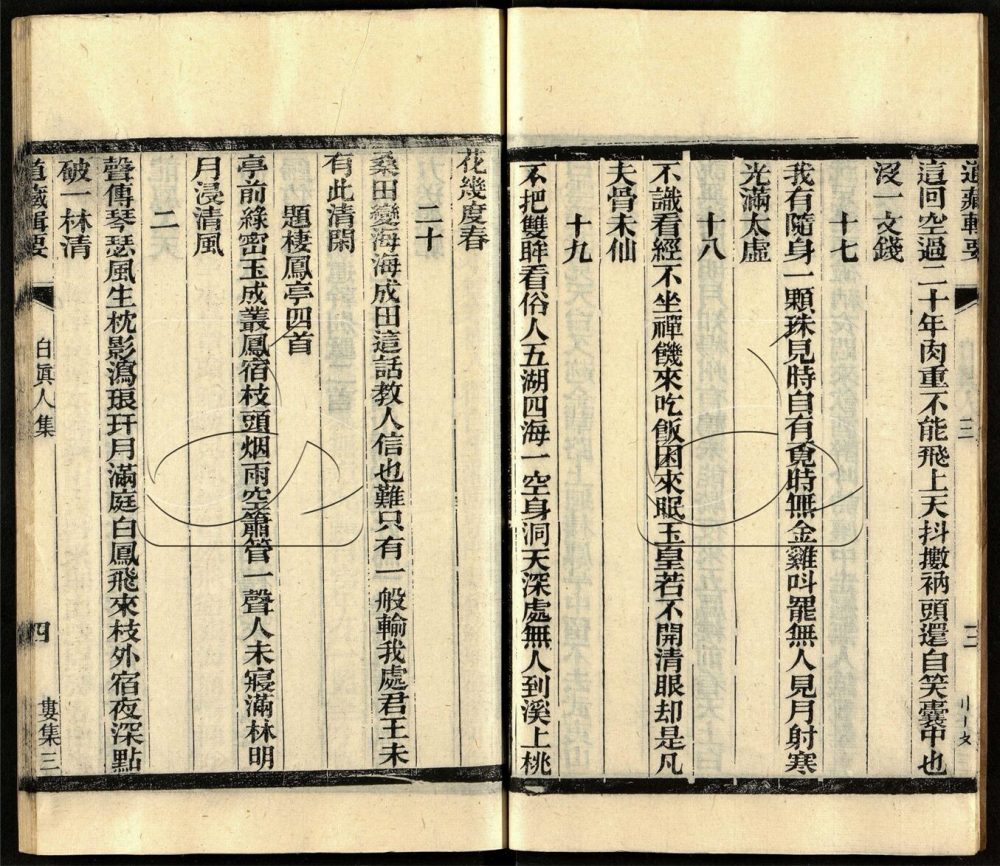 道藏輯要
三
這回空過二十年肉重不能飛上天抖擻衲頭還自笑囊中也
沒一文錢
十七
我有隨身一顆珠見時自有覔時無金雞呌罷無人見月射寒
光滿太虛
十八
不識看經不坐禪饑來吃飯困來眠玉皇若不開清眼却是凡
夫骨未仙
十九
不把雙眸看俗人五湖四海一空身洞天深處無人到溪上桃
花幾度春
二十
桑田變海海成田這話教人信也難只有一般輸我處君王未
有此清閑
題棲鳳亭四首
亭前綠密玉成叢鳳宿枝頭烟雨空簫管一聲人未寢滿林明
月浸清風
二
聲傳琴瑟風生枕影瀉琅玕月滿庭白鳳飛來枝外宿夜深點
破一林清
道藏輯要
白眞人集
四
婁集三